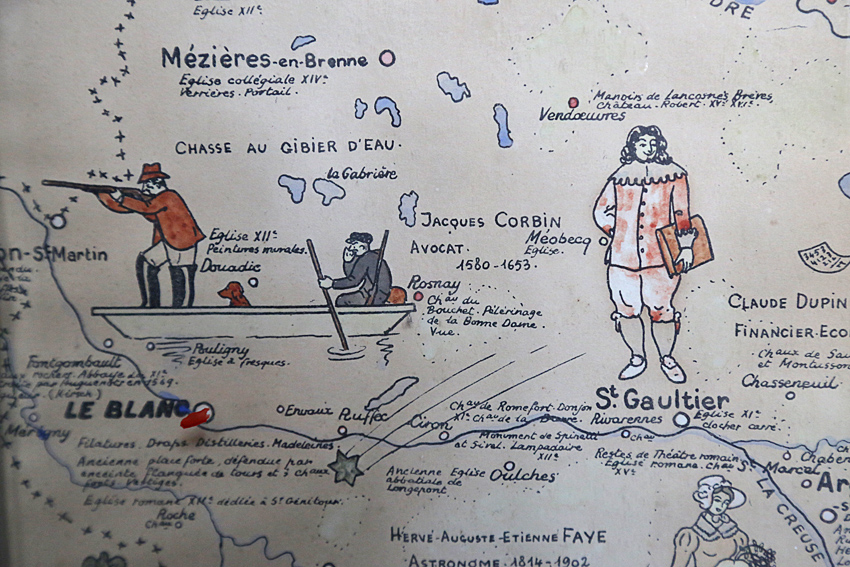 Eglise XIIe
DRE
Mézières-en-Brenne
Eglise collégiale XIVe
Verrières. Portail.
Manoirs de Lancosne Brèves,
Château. Robert. XVe XVIe.
Vendœuvres
CHASSE AU GIBIER D'EAU.
la Gabrière
JACQUES CORBIN
AVOCAT.
1580-1653.
Méobecq
Eglise.
on-St Martin
Eglise XIIe
Peintures murales.
Douadic
Rosnay
Chau du
Bouchet. Pélerinage
de la Bonne Dame.
Vue.
CLAUDE DUPIN
FINANCIER-ECO
Chaux de Sau
et Montusson
Chasseneuil
Pouligny
Eglise à fresques.
Fontgombault
LE BLANC
Envaux
Ruffec
Ciron
Chau de Romefort. Donjon
XIe Chau de la Barre.
Monument de Spinelli
et Sivel. Lampadaire
XIIe
St Gaultier
Rivarennes
Eglise XIe
clocher carré.
Chau
Filatures. Draps. Distilleries. Madeleines.
Ancienne place forte, défendue par
enceinte flanquée de tours et 3 chaux
forts. Vestiges.
Eglise romane XIIe dédiée à St Génitour
Roche
Chau
Mérigny
Ancienne Eglise
abbatiale de
Longefont
Oulches
Restes de Théâtre romain
Eglise romane. Chau
XVe
St Marcel
Chabene
Ar
LA CREUSE
HERVÉ-AUGUSTE-ETIENNE FAYE
ASTRONOME. 1814-1902